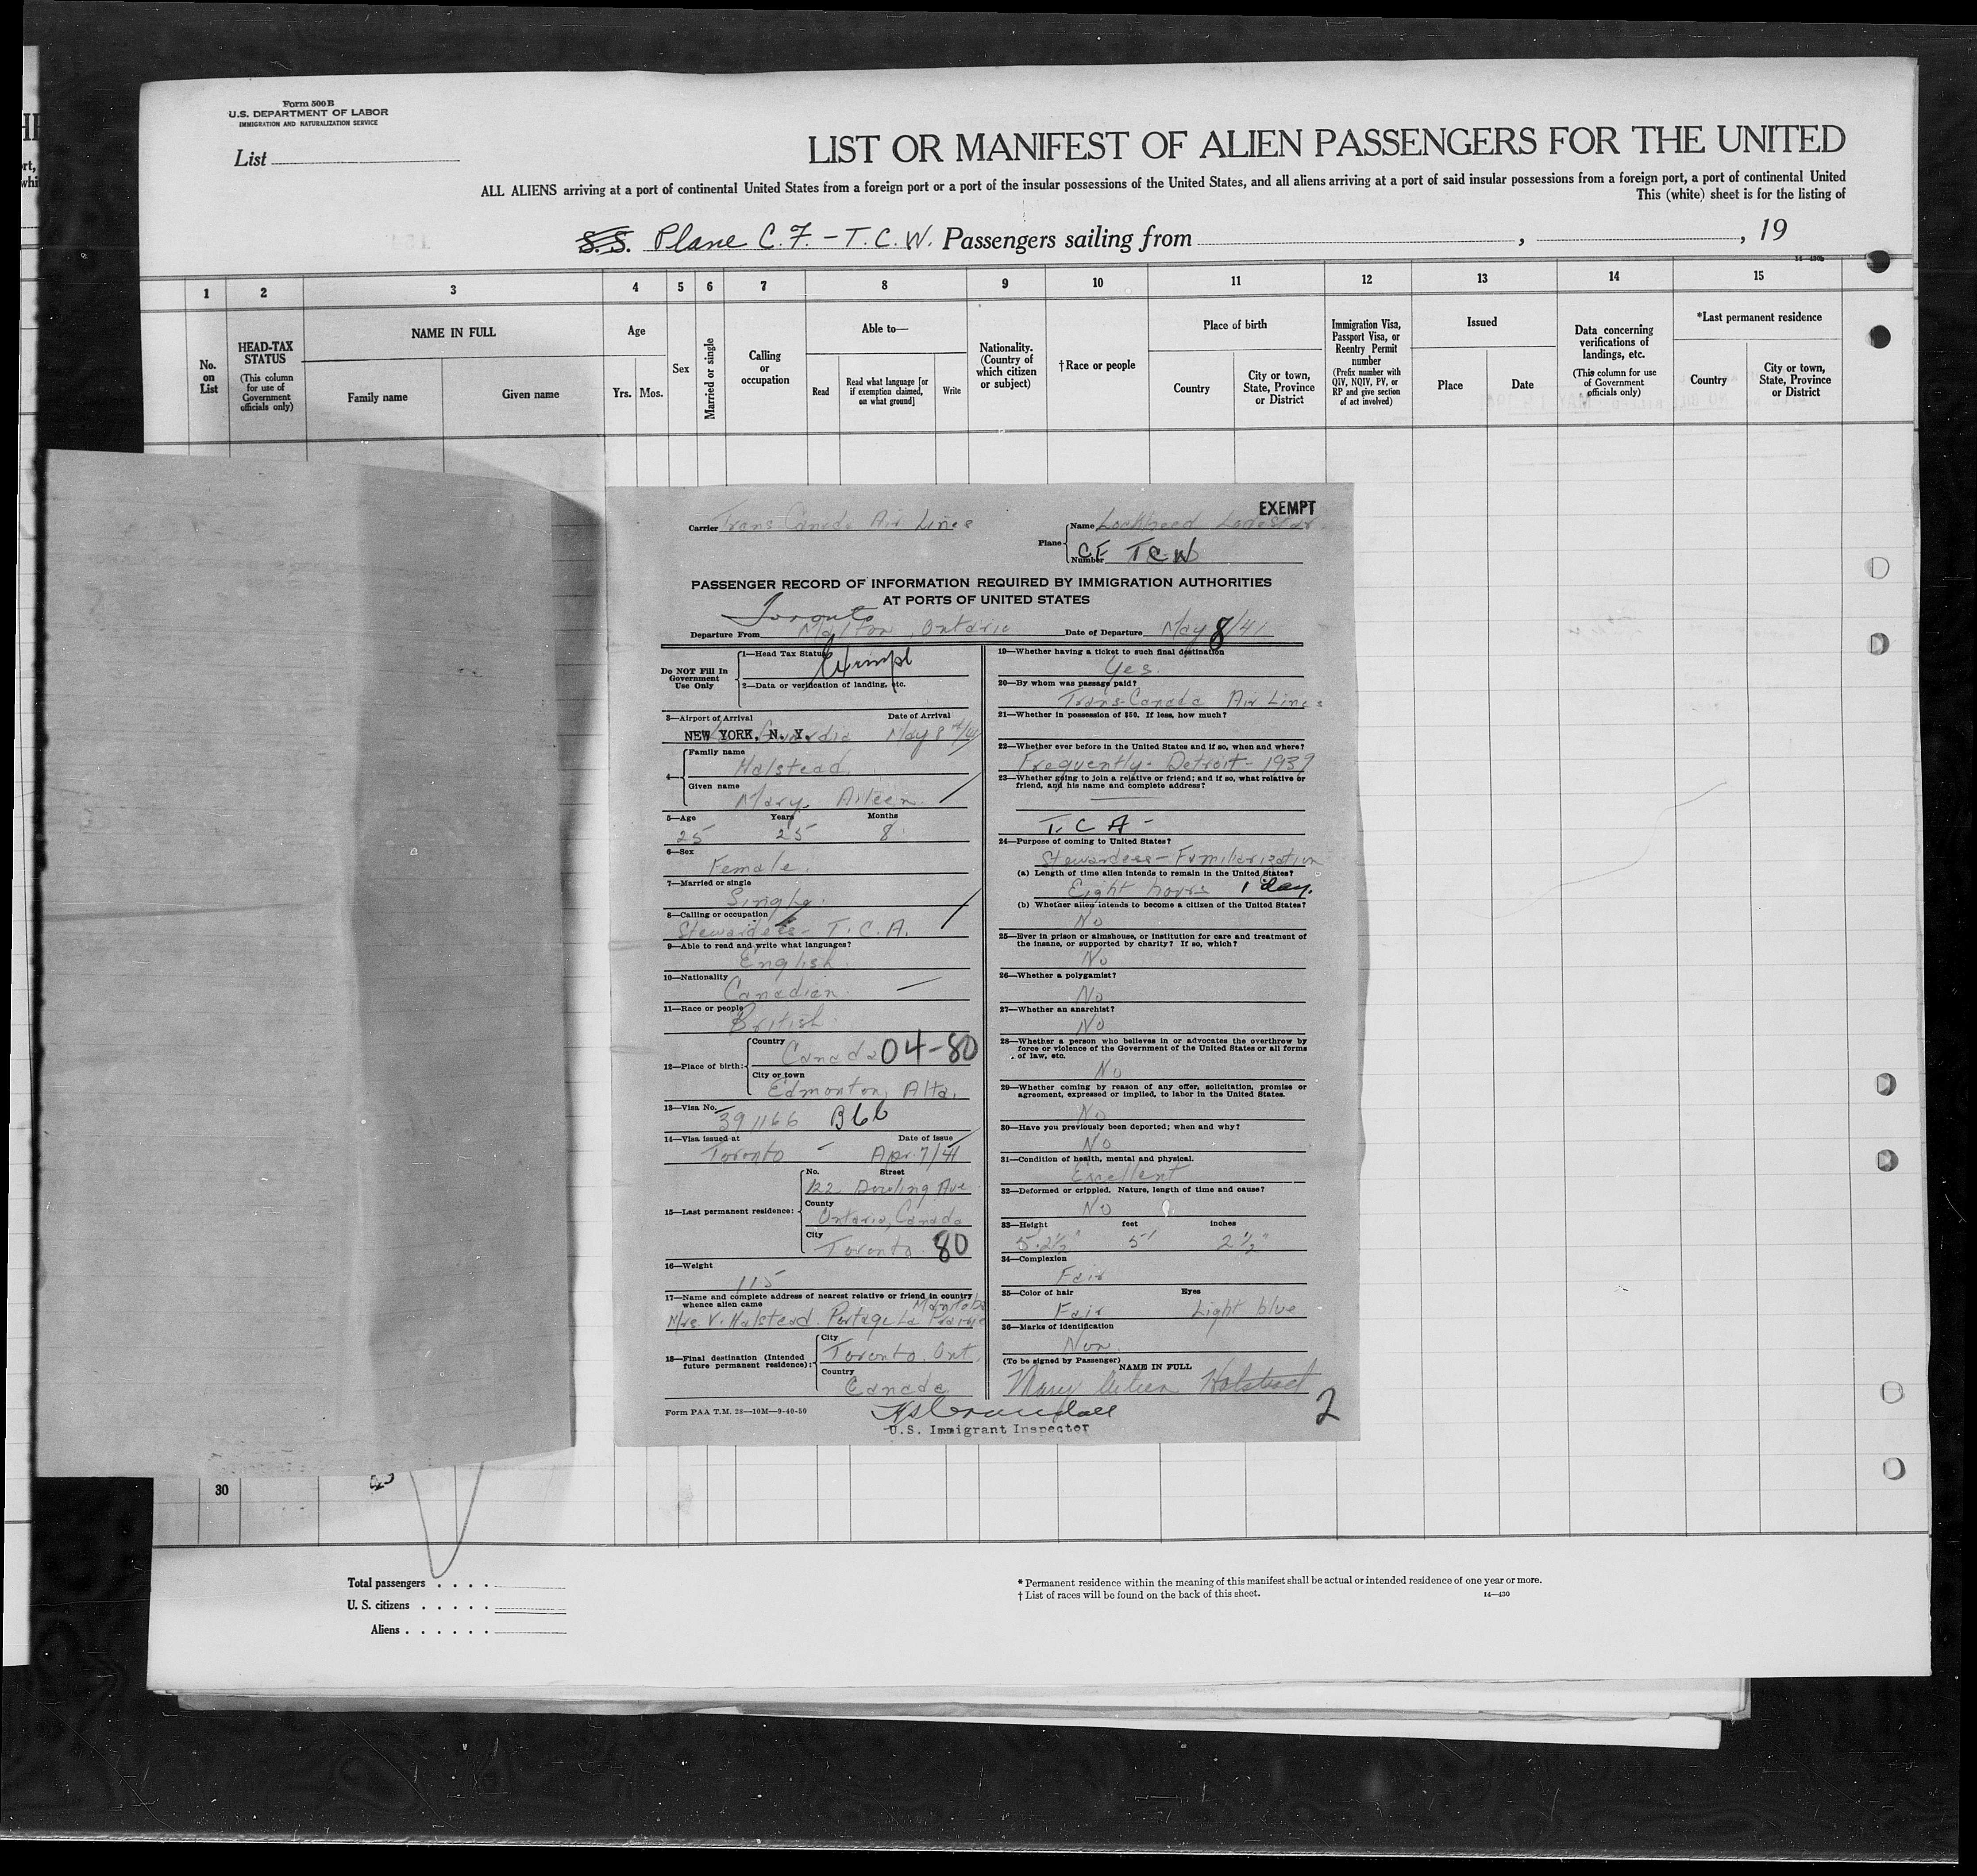 Form 500B
U.S. DEPARTMENT OF LABOR
IMMIGRATION AND NATURALIZATION SERVICE
List
LIST OR MANIFEST OF ALIEN PASSENGERS FOR THE UNITED
ALL ALIENS arriving at a port of continental United States from a foreign port or a port of the insular possessions of the United States, and all aliens arriving at a port of said insular possessions from a foreign port, a port of continental United
This (white) sheet is for the listing of
S.S. Plane C.F.-T.C.W. Passengers sailing from , , 19
1 2 3 4 5 6 7 8 9 10 11 12 13 14 15
No. on List
HEAD-TAX STATUS
(This column for use of Government officials only)
NAME IN FULL
Family name
Given name
Age
Yrs. Mos.
Sex
Married or single
Calling or occupation
Able to—
Read
Read what language [or if exemption claimed, on what ground]
Write
Nationality. (Country of which citizen or subject)
†Race or people
Place of birth
Country
City or town, State, Province or District
Immigration Visa, Passport Visa, or Reentry Permit number
(Prefix number with QIV, NQIV, PV, or RP and give section of act involved)
Issued
Place
Date
Data concerning verifications of landings, etc.
(This column for use of Government officials only)
*Last permanent residence
Country
City or town, State, Province or District
EXEMPT
Carrier Trans Canada Air Lines
Plane
Name Lockheed Lodestar
Number CF TCW
PASSENGER RECORD OF INFORMATION REQUIRED BY IMMIGRATION AUTHORITIES
AT PORTS OF UNITED STATES
Toronto
Departure From Malton, Ontario Date of Departure May 8/41
Do NOT Fill In Government Use Only
1—Head Tax Status Exempt
2—Data or verification of landing, etc.
3—Airport of Arrival Date of Arrival
NEW YORK, N. Y. May 8th/41
4—
Family name
Halstead
Given name
Mary Aileen
5—Age Years Months
25 25 8
6—Sex
Female.
7—Married or single
Single.
8—Calling or occupation
Stewardess- T.C.A.
9—Able to read and write what languages?
English
10—Nationality
Canadian
11—Race or people
British
12—Place of birth:
Country
Canada 04-80
City or town
Edmonton, Alta.
13—Visa No.
391166 B66
14—Visa issued at Date of issue
Toronto Apr. 7/41
15—Last permanent residence:
No. Street
122 Dowling Ave
County
Ontario, Canada
City
Toronto 80
16—Weight
115
17—Name and complete address of nearest relative or friend in country whence alien came
Manitoba
Mrs. V. Halstead. Portage La Prairie
18—Final destination (Intended future permanent residence):
City
Toronto, Ont,
Country
Canada
19—Whether having a ticket to such final destination
Yes.
20—By whom was passage paid?
Trans-Canada Air Lines
21—Whether in possession of $50. If less, how much?
22—Whether ever before in the United States and if so, when and where?
Frequently- Detroit- 1939
23—Whether going to join a relative or friend; and if so, what relative or friend, and his name and complete address?
T.C A -
24—Purpose of coming to United States?
Stewardess- Familiarization
(a) Length of time alien intends to remain in the United States?
Eight hours 1 day.
(b) Whether alien intends to become a citizen of the United States?
No
25—Ever in prison or almshouse, or institution for care and treatment of the insane, or supported by charity? If so, which?
No
26—Whether a polygamist?
No
27—Whether an anarchist?
No
28—Whether a person who believes in or advocates the overthrow by force or violence of the Government of the United States or all forms of law, etc.
No
29—Whether coming by reason of any offer, solicitation, promise or agreement, expressed or implied, to labor in the United States.
No
30—Have you previously been deported; when and why?
No
31—Condition of health, mental and physical.
Excellent
32—Deformed or crippled. Nature, length of time and cause?
No
33—Height feet inches
5.2½" 5' 2½"
34—Complexion
Fair
35—Color of hair Eyes
Fair Light blue
36—Marks of identification
Non.
(To be signed by Passenger) NAME IN FULL
Mary Aileen Halstead
Form PAA T.M. 28—10M—9-40-50
U.S. Immigrant Inspector
2
30
Total passengers . . . .
U. S. citizens . . . . .
Aliens . . . . . .
* Permanent residence within the meaning of this manifest shall be actual or intended residence of one year or more.
† List of races will be found on the back of this sheet.
14—430